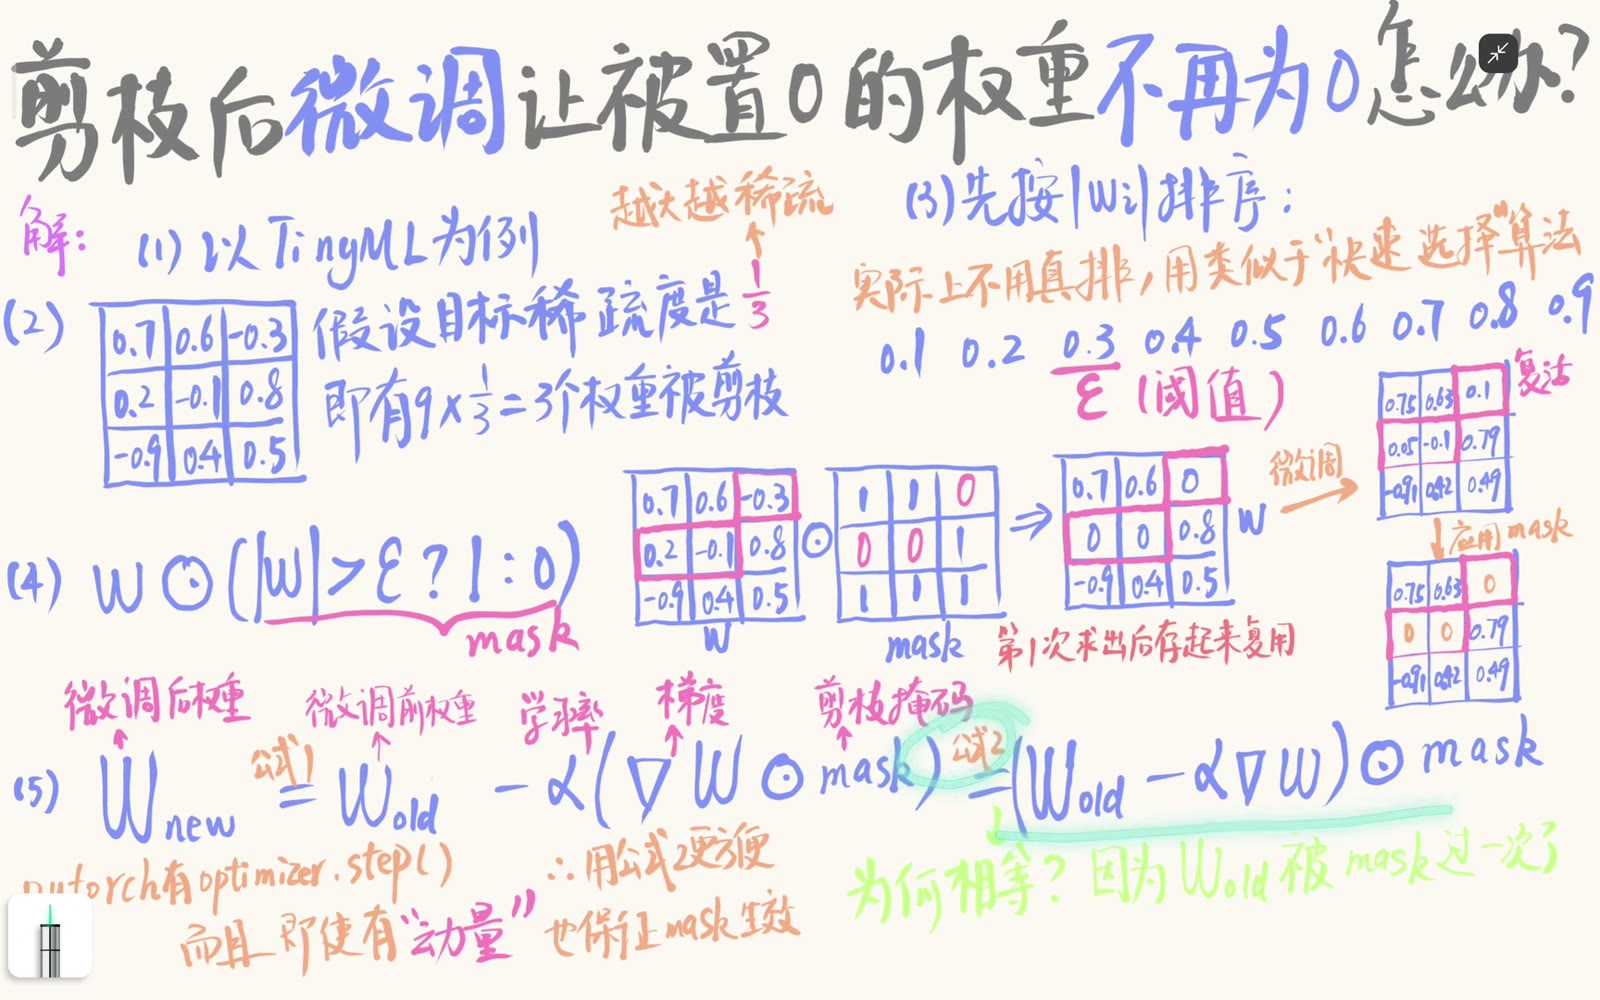 剪枝后微调让被置0的权重不再为0怎么办?
解:
(1) 以TinyML为例
越大越稀疏
(2)
0.7 0.6 -0.3
0.2 -0.1 0.8
-0.9 0.4 0.5
假设目标稀疏度是1/3
即有9×1/3=3个权重被剪枝
(3)先按|Wi|排序:
实际上不用真排,用类似于"快速选择"算法
0.1 0.2 0.3 0.4 0.5 0.6 0.7 0.8 0.9
ε (阈值)
(4) W⊙(|W|>ε?1:0)
mask
0.7 0.6 -0.3
0.2 -0.1 0.8
-0.9 0.4 0.5
W
⊙
1 1 0
0 0 1
1 1 1
mask
⇒
0.7 0.6 0
0 0 0.8
-0.9 0.4 0.5
W
第1次求出后存起来复用
微调
0.75 0.63 0.1
0.05 -0.1 0.79
-0.91 0.42 0.49
复活
↓应用mask
0.75 0.63 0
0 0 0.79
-0.91 0.42 0.49
微调后权重 微调前权重 学习率 梯度 剪枝掩码
公式1 公式2
(5) Wnew = Wold - α(∇W⊙mask) = (Wold - α∇W)⊙mask
pytorch有optimizer.step() ∴用公式2更方便
而且即使有"动量"也保证mask生效
为何相等?因为Wold被mask过一次了